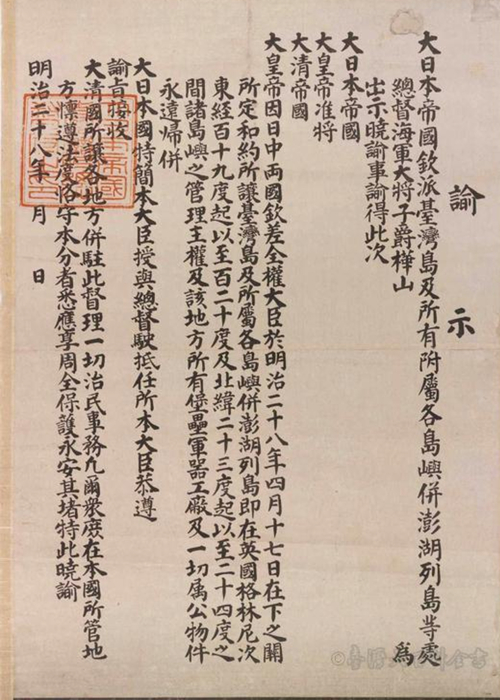 諭示
大日本帝國欽派臺灣島及所有附屬各島嶼併澎湖列島等處
總督海軍大將子爵樺山 為
出示曉諭事諭得此次
大日本帝國
大皇帝准將
大清帝國
大皇帝因日中両國欽差全權大臣於明治二十八年四月十七日在下之關
所定和約所讓臺灣島及所屬各島嶼併澎湖列島即在英國格林尼次
東經百十九度起以至百二十度及北緯二十三度起以至二十四度之
間諸島嶼之管理主權及該地方所有堡壘軍器工廠及一切属公物件
永遠歸併
大日本國特簡本大臣授與總督駛抵任所本大臣恭遵
諭旨接收
大清國所讓各地方併駐此督理一切治民事務凡爾衆庶在本國所管地
方懍遵法度恪守本分者悉應享周全保護永安其堵特此曉諭
明治二十八年 月 日